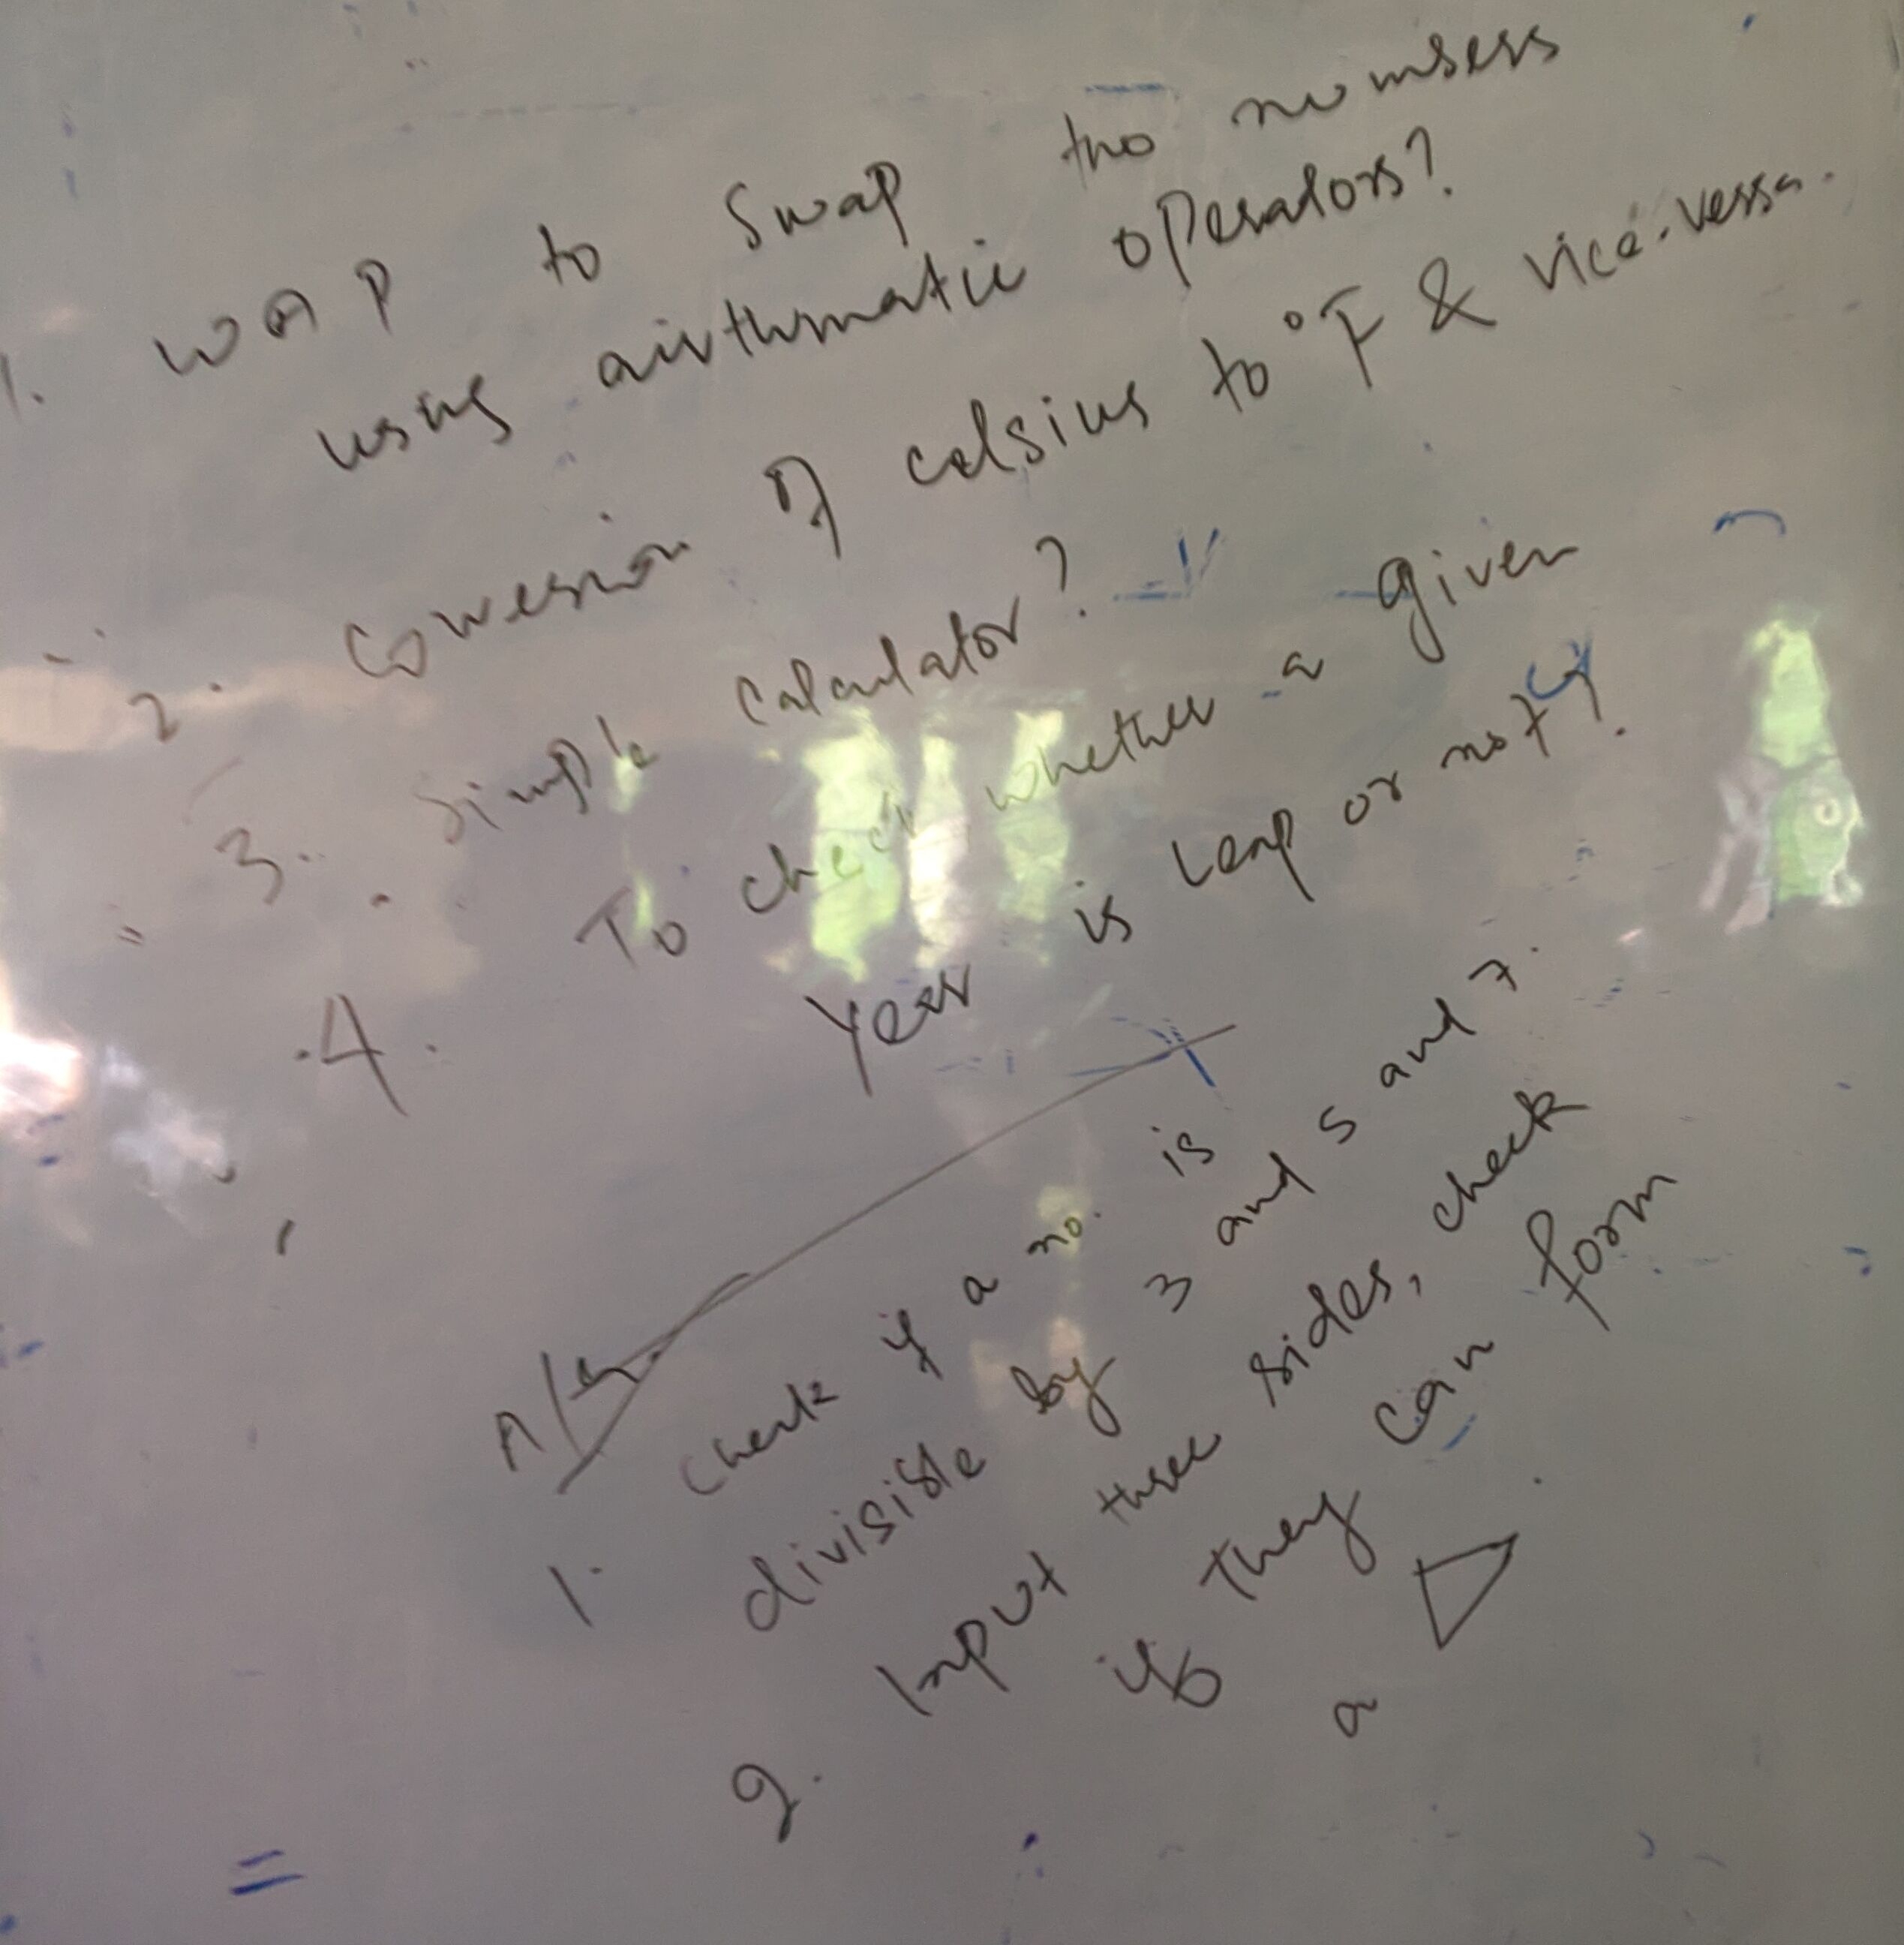 1. WAP to Swap two numbers
using airthmatic operators?
2. Conversion of celsius to °F & vice-versa.
3. Simple Calculator?
4. To check whether a given
Year is Leap or not?
1. Check if a no. is
divisible by 3 and 5 and 7.
2. Input three sides, check
if they can form
a